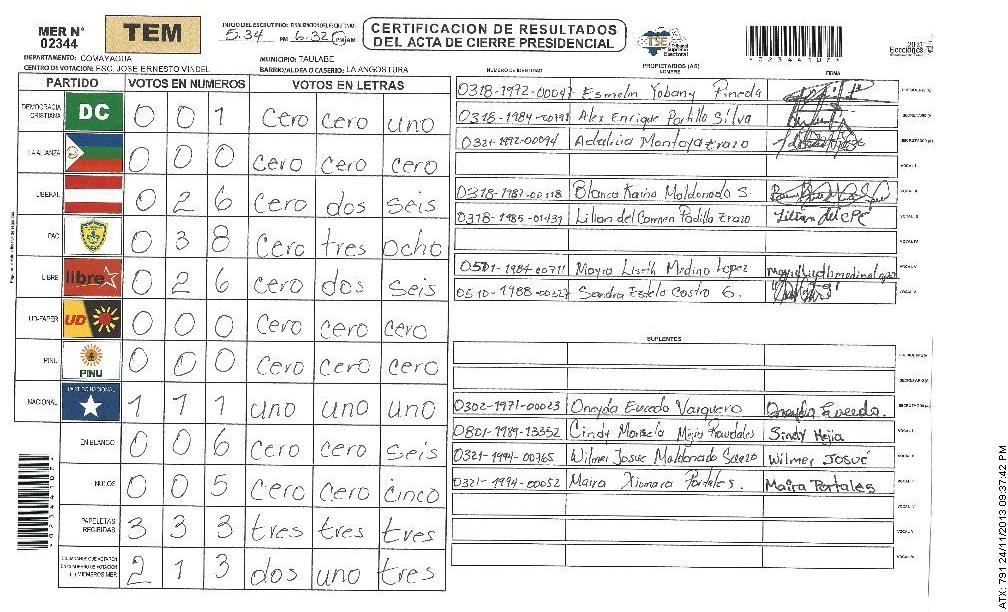 MER N° 02344
TEM
INICIO DEL ESCRUTINIO: 5:34 PM FINALIZACION DEL ESCRUTINIO: 6:32 PM AM
CERTIFICACION DE RESULTADOS
DEL ACTA DE CIERRE PRESIDENCIAL
TSE Tribunal Supremo Electoral
*0234410 7*
DEPARTAMENTO: COMAYAGUA
MUNICIPIO: TAULABE
CENTRO DE VOTACION: ESC. JOSE ERNESTO VINDEL
BARRIO/ALDEA O CASERIO: LA ANGOSTURA
PARTIDO VOTOS EN NUMEROS VOTOS EN LETRAS
DEMOCRACIA CRISTIANA DC 0 0 1 cero cero uno
LA ALIANZA 0 0 0 cero cero cero
LIBERAL 0 2 6 cero dos seis
PAC 0 3 8 cero tres ocho
LIBRE libre 0 2 6 cero dos seis
UD-FAPER UD 0 0 0 cero cero cero
PINU PINU 0 0 0 cero cero cero
NACIONAL PARTIDO NACIONAL 1 1 1 uno uno uno
EN BLANCO 0 0 6 cero cero seis
NULOS 0 0 5 cero cero cinco
PAPELETAS RECIBIDAS 3 3 3 tres tres tres
CIUDADANOS QUE VOTARON EN CUADERNO DE VOTACION (+) MIEMBROS MER 2 1 3 dos uno tres
NUMERO DE IDENTIDAD PROPIETARIOS (AS) NOMBRE FIRMA
0318-1972-00047 Esmelin Yobany Pineda
0318-1984- Alex Enrique Portillo Silva
0321-1992-00094 Adalicia Montoya Erazo
0318-1987-00118 Blanca Karina Maldonado S.
0318-1985-01439 Lilian del Carmen Padilla Erazo
0501-1984-00711 Mayra Liseth Medina Lopez
0510-1988-00327 Sandra Estela Castro G.
SUPLENTES
0302-1971-00023 Oneyda Euceda Varquero Oneyda Euceda.
0801-1989-13352 Cindy Mejia Sindy Mejia
0321-1994-00765 Wilmer Josue Maldonado Wilmer Josué
0321-1994-00052 Maira Xiomara Portales. Maira Portales
ATX: 791 24/11/2013 09:37:42 PM